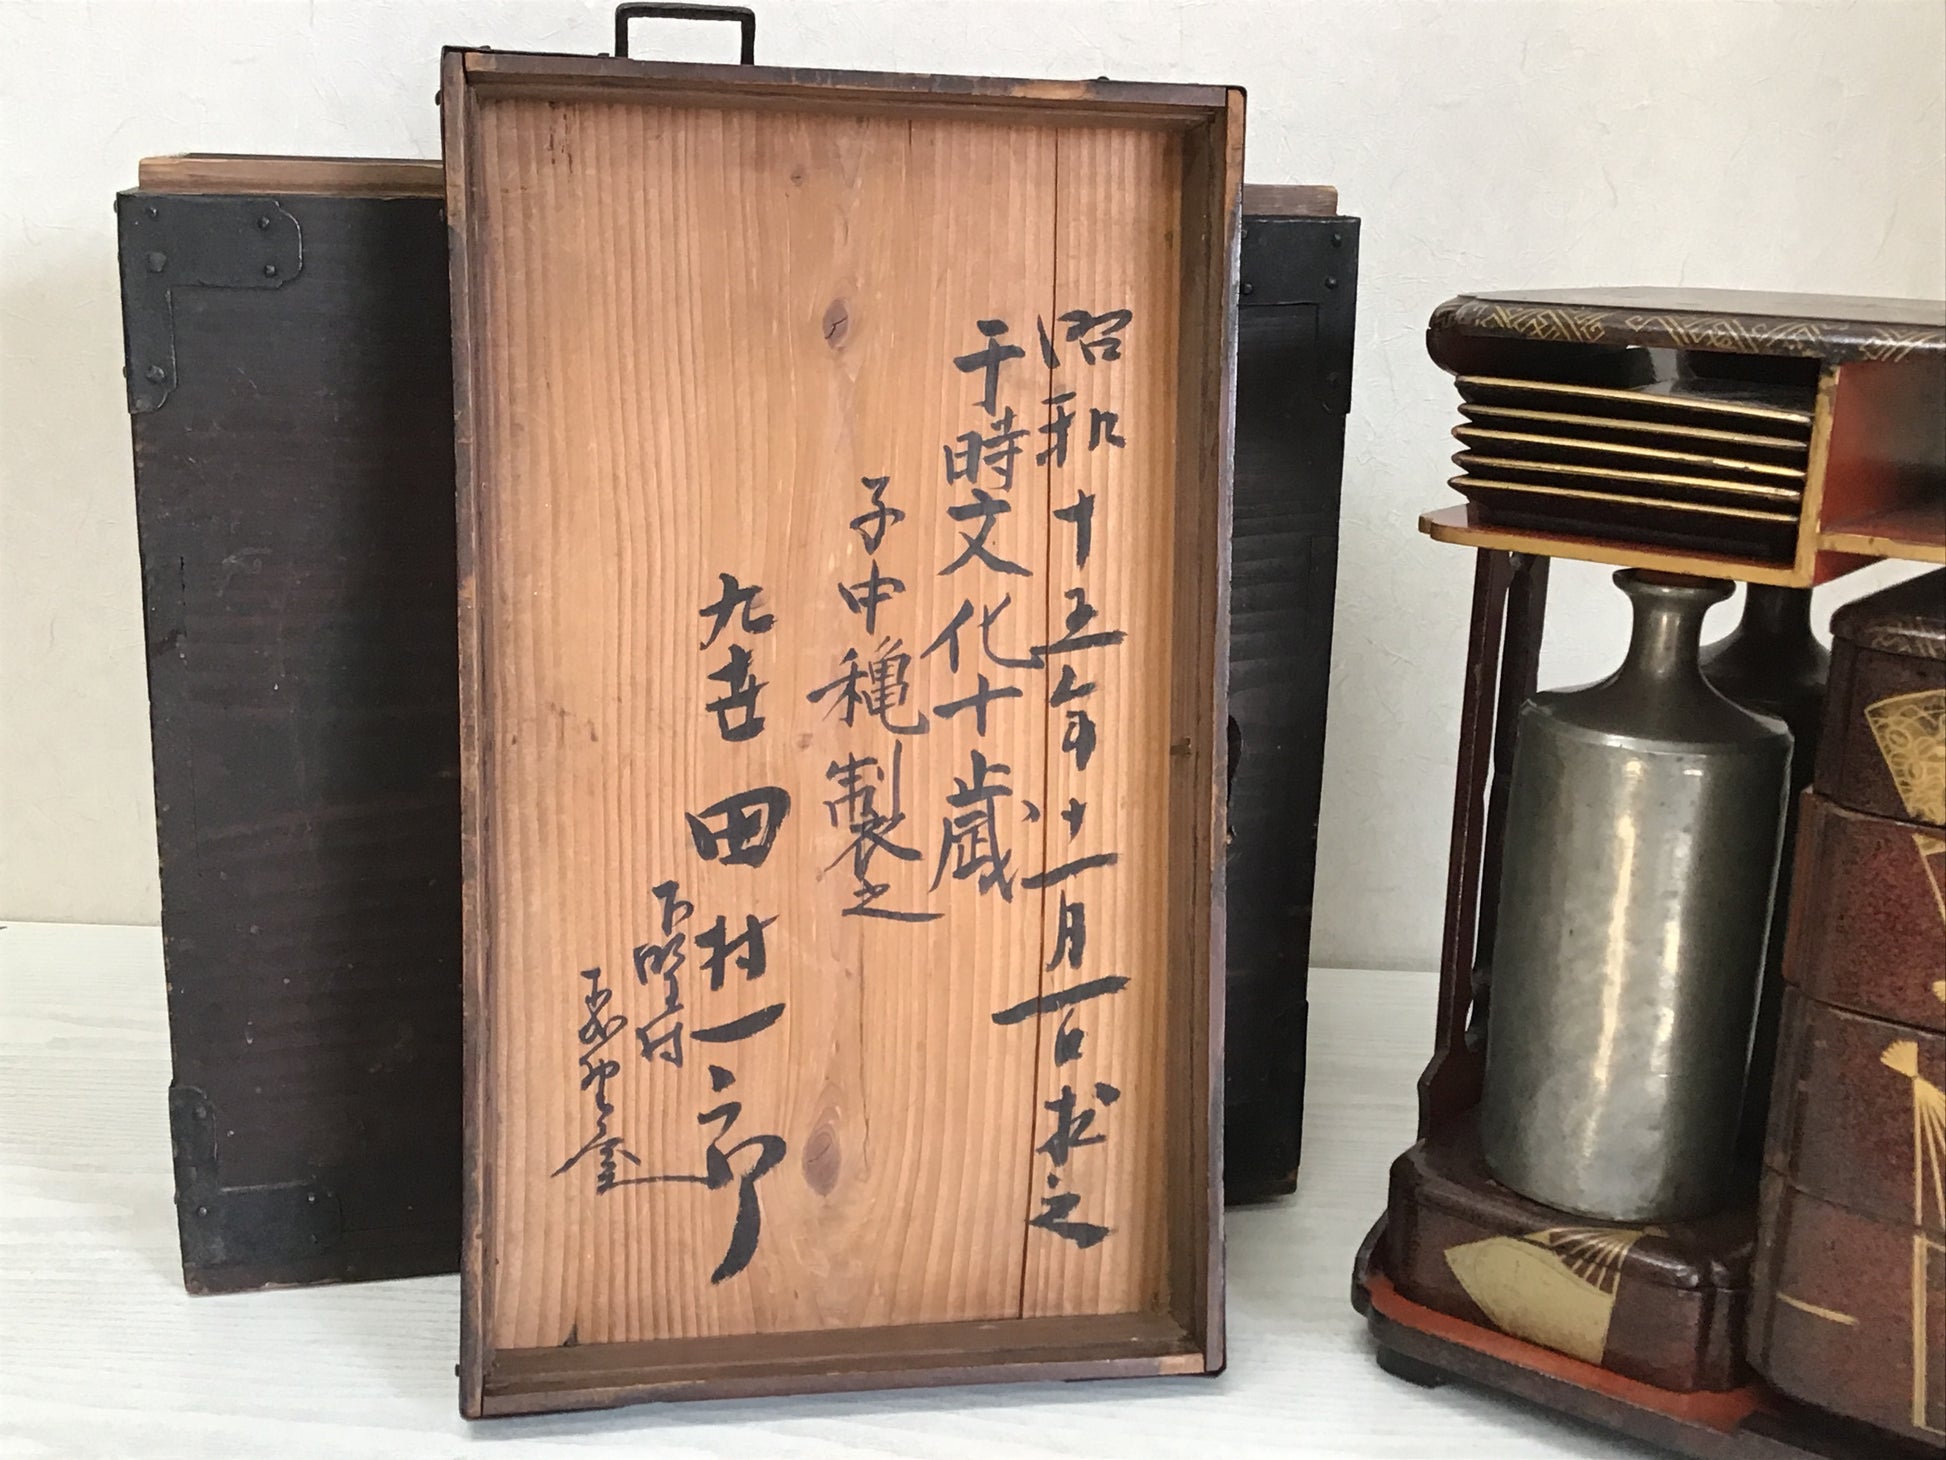 昭和十五年十一月一日求之
干時文化十歳
子中穐製之
田村一郎